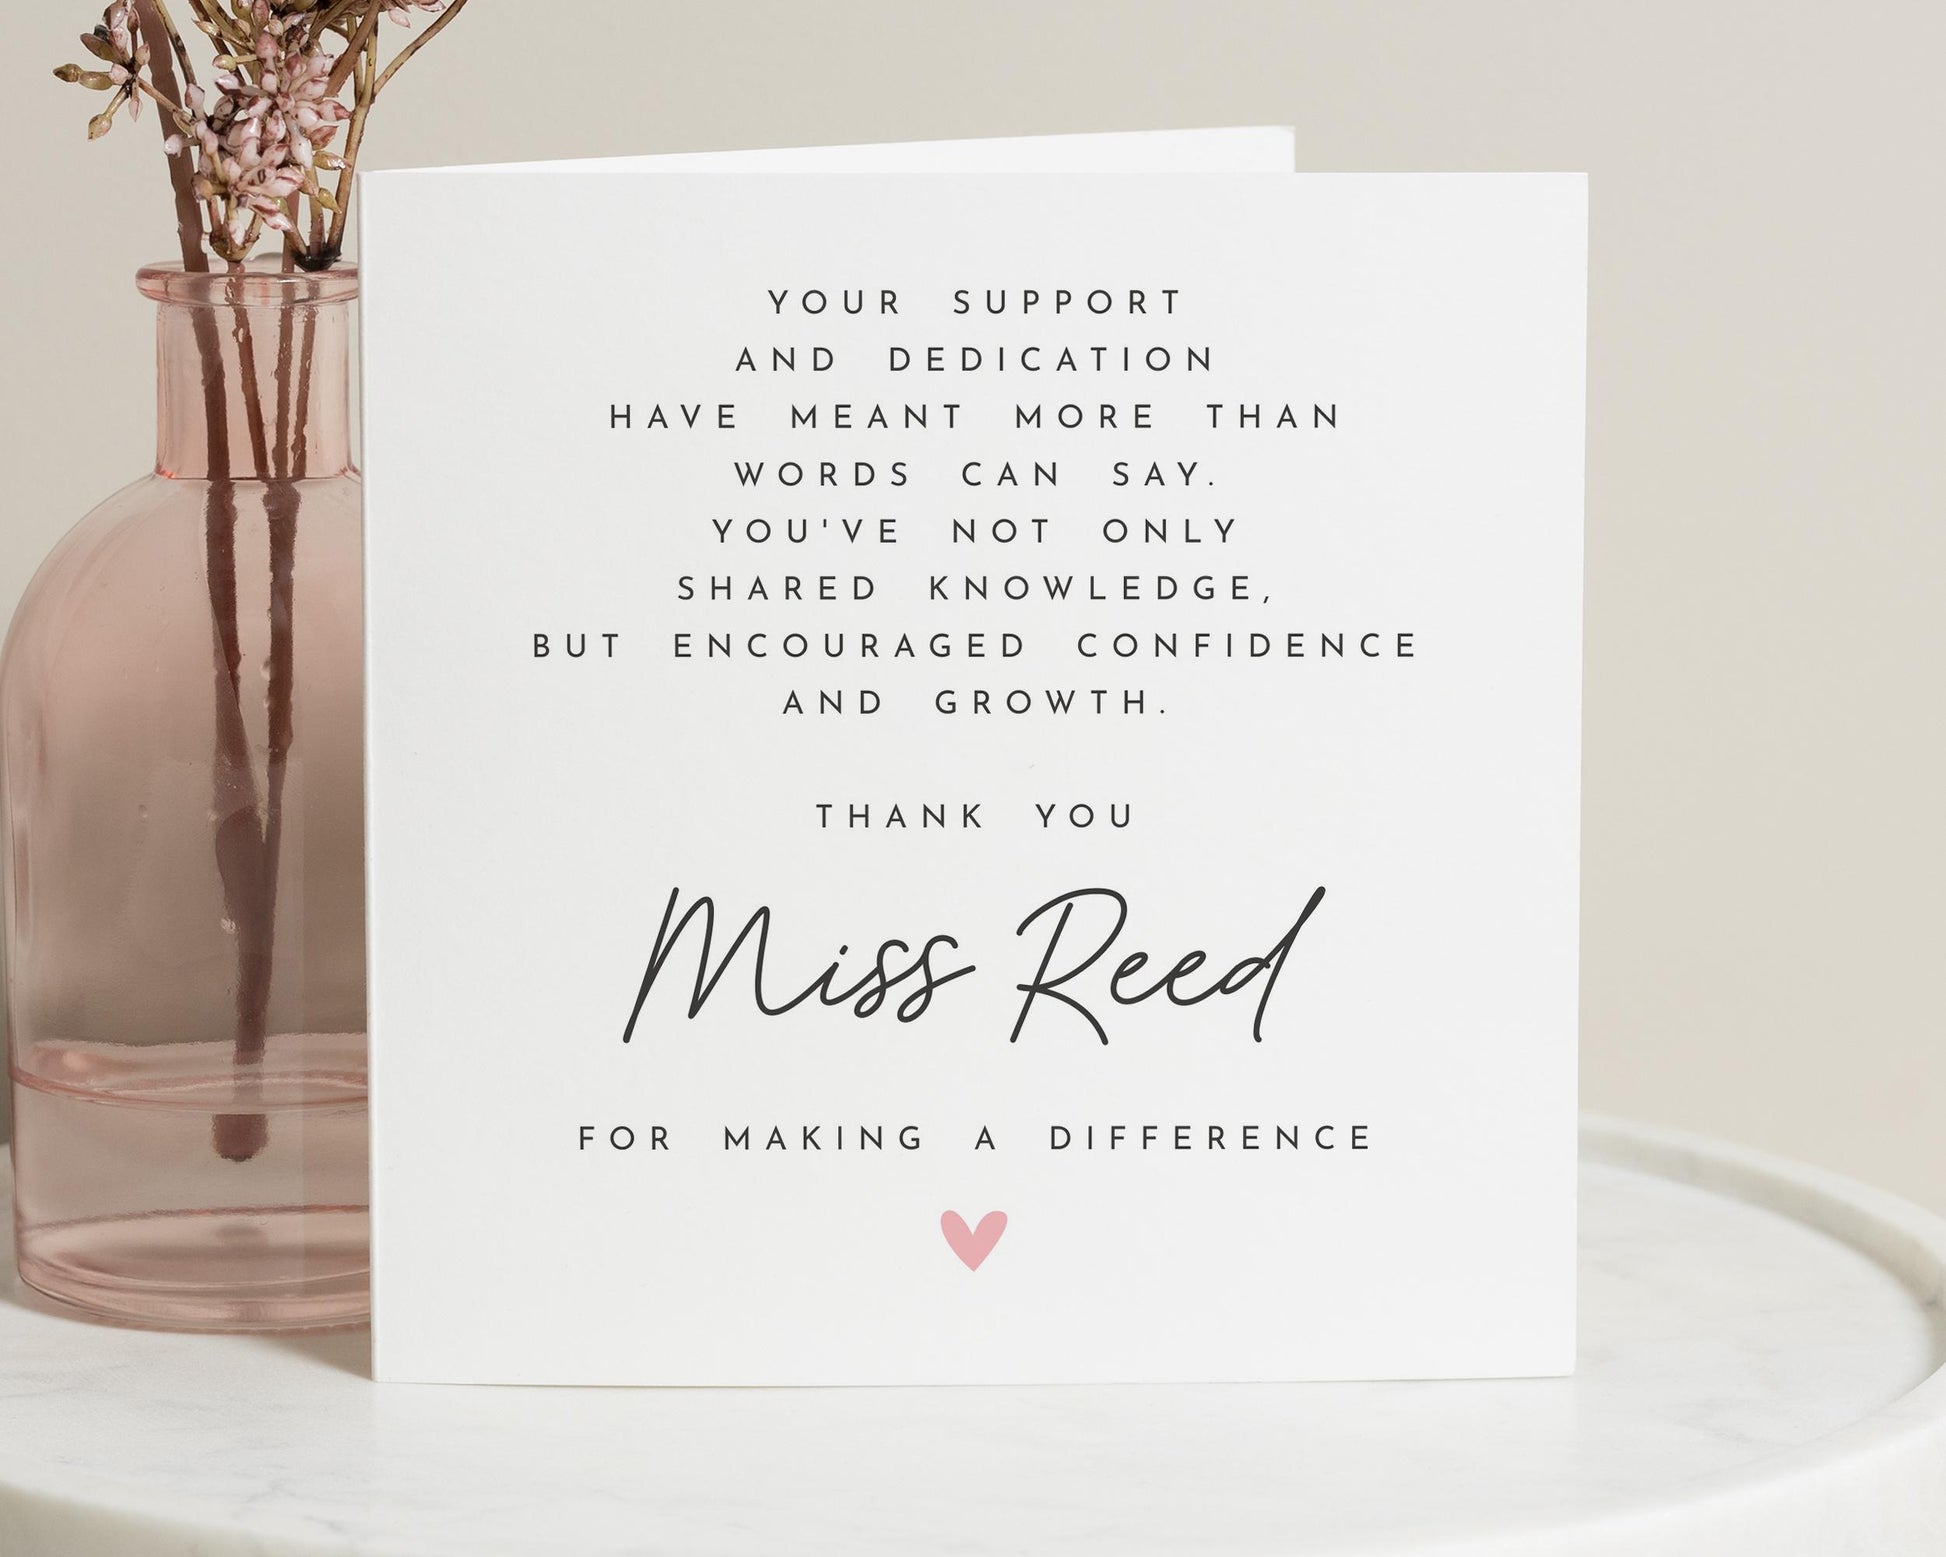 YOUR SUPPORT
AND DEDICATION
HAVE MEANT MORE THAN
WORDS CAN SAY.
YOU'VE NOT ONLY
SHARED KNOWLEDGE,
BUT ENCOURAGED CONFIDENCE
AND GROWTH.
THANK YOU
Miss Reed
FOR MAKING A DIFFERENCE